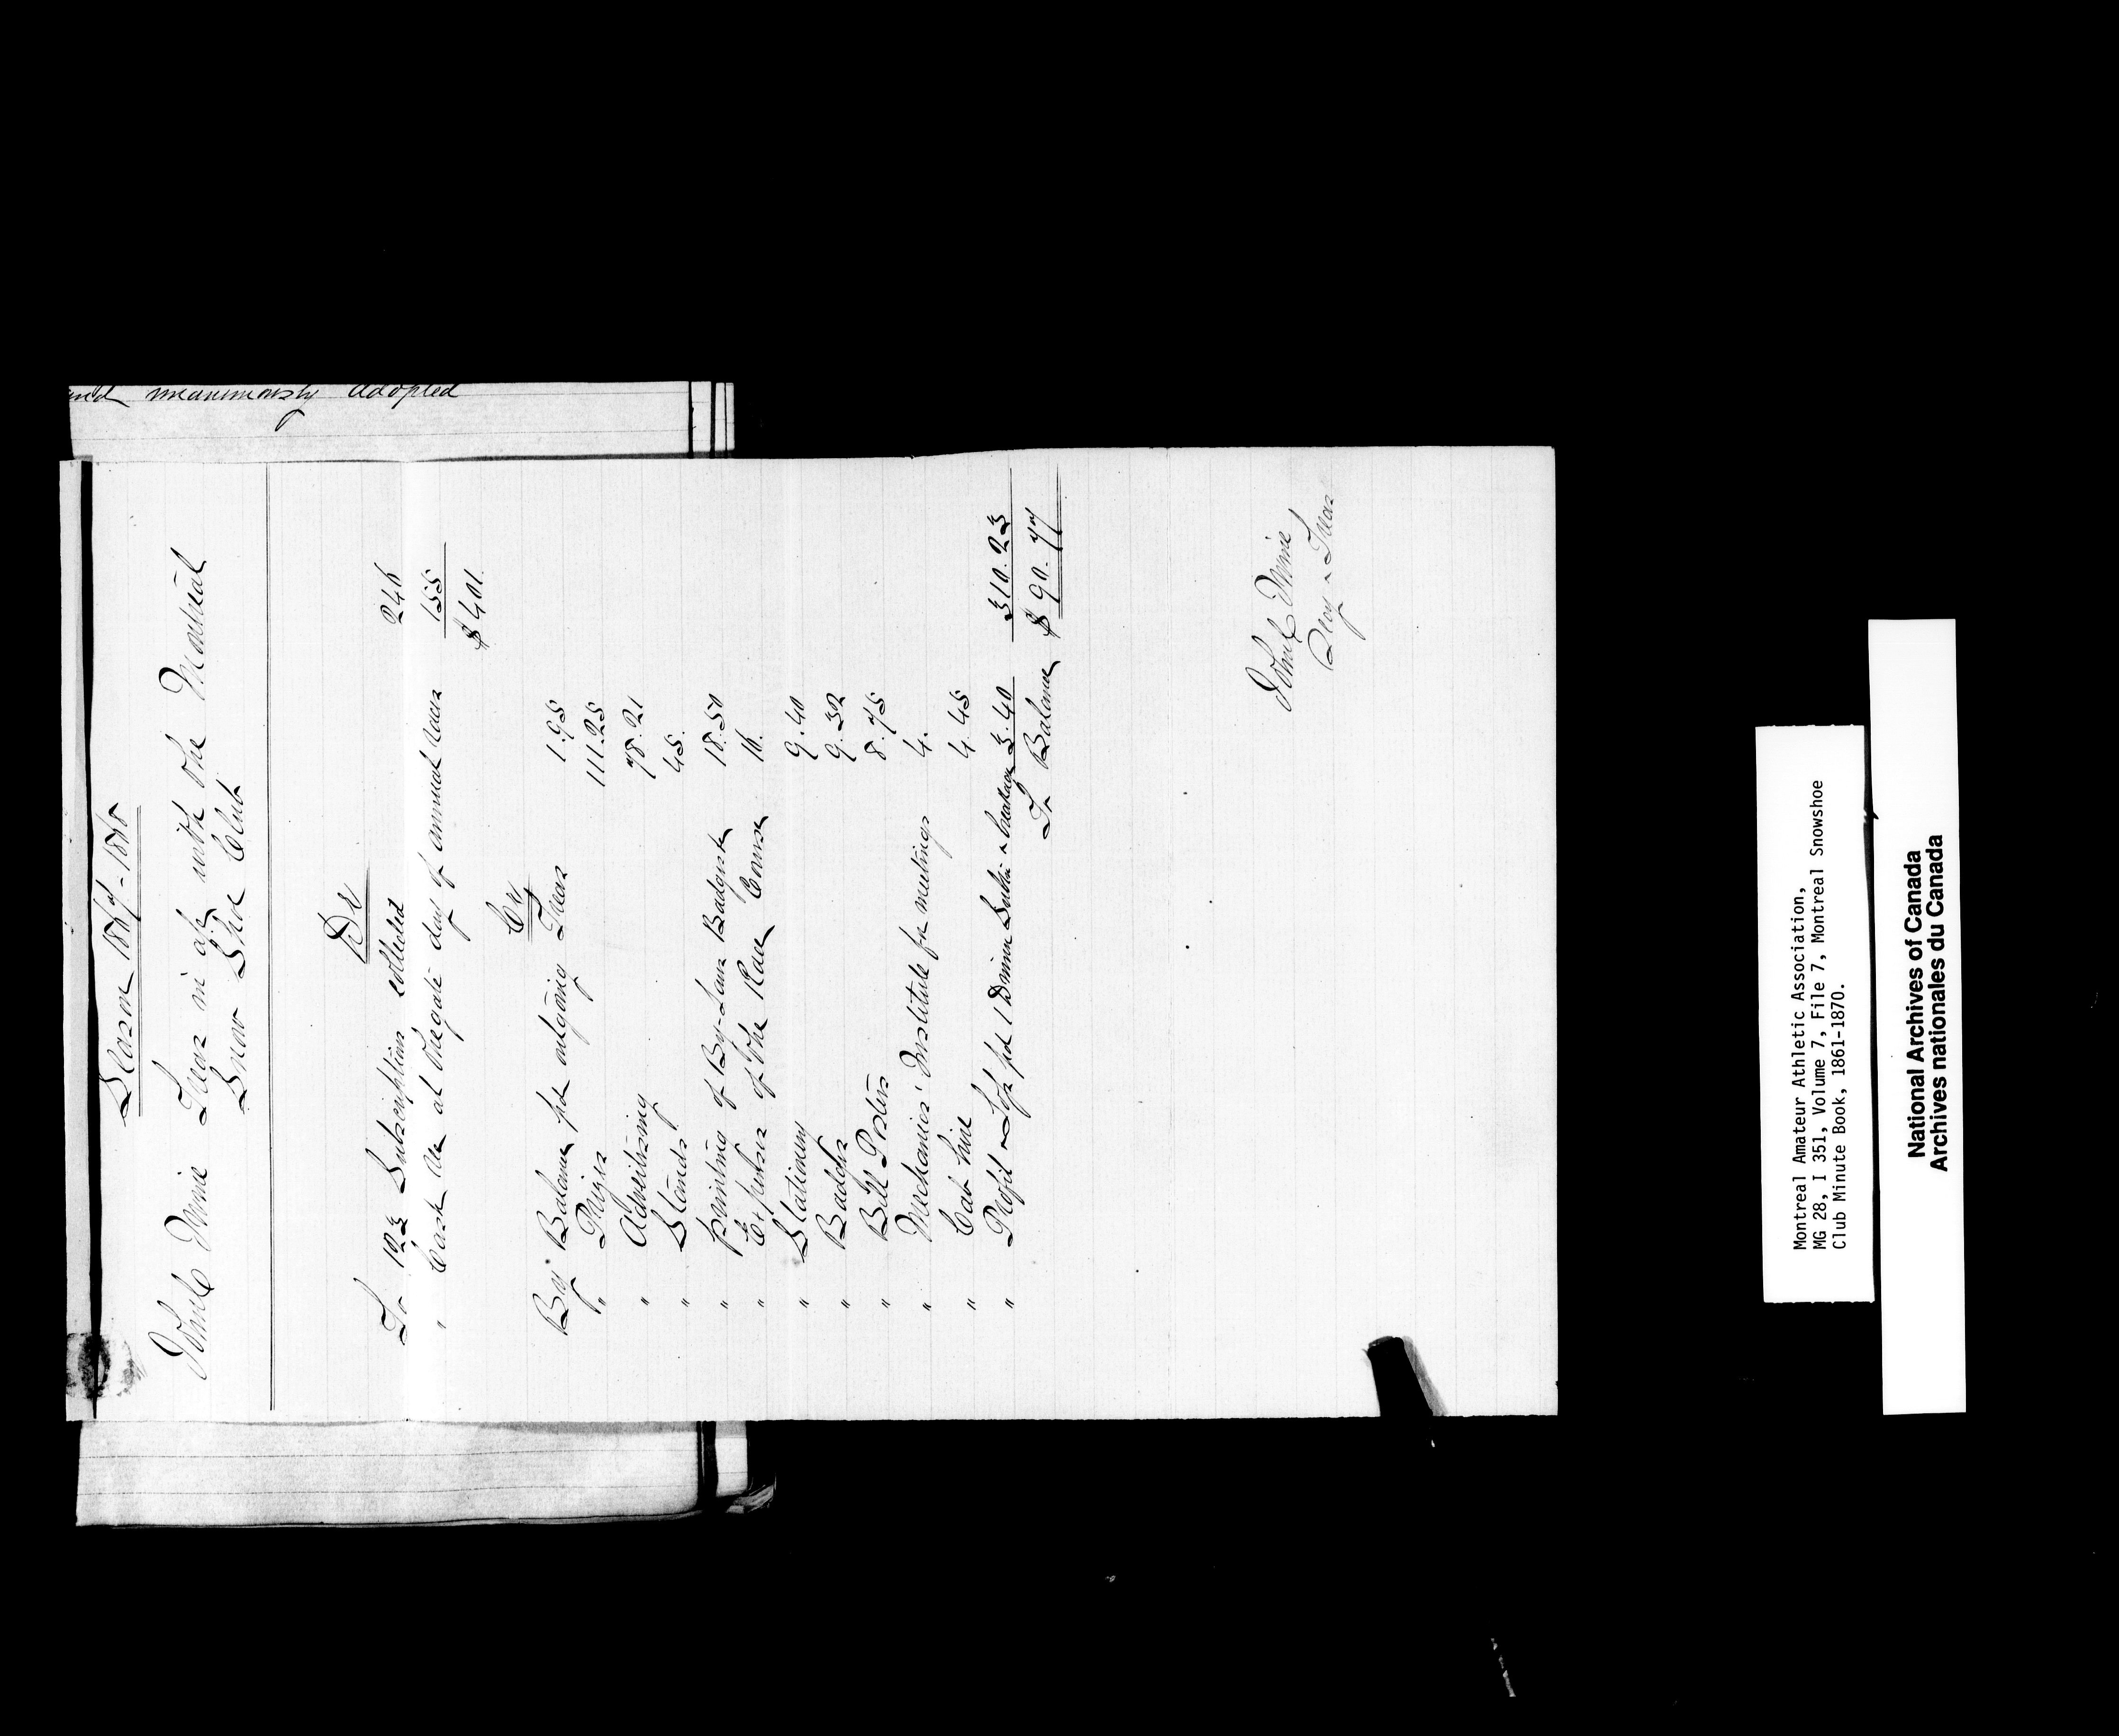 and unanimously adopted
Season 1867-1868
John C Irvine Treas in a/c with the Montreal
Snow Shoe Club
Dr
To 123 Subscriptions collected 246
" Cash at the gate day of annual races 155
$401.
Cr
By Balance pd outgoing Treas 1.95
" Prizes 111.25
" Advertising 78.21
" Stands 45.
" Printing of By-Laws 18.50
" Expenses of the Race Course 16.
" Stationery 9.40
" Badges 9.32
" Bill Posters 8.75
" Mechanics' Institute for meetings 4.
" Cab hire 4.45
" Profit & Loss pd 1 Dinner & breakage 3.40 310.23
To Balance $90.77
John C Irvine
Secy & Treas
Montreal Amateur Athletic Association,
MG 28, I 351, Volume 7, File 7, Montreal Snowshoe
Club Minute Book, 1861-1870.
National Archives of Canada
Archives nationales du Canada